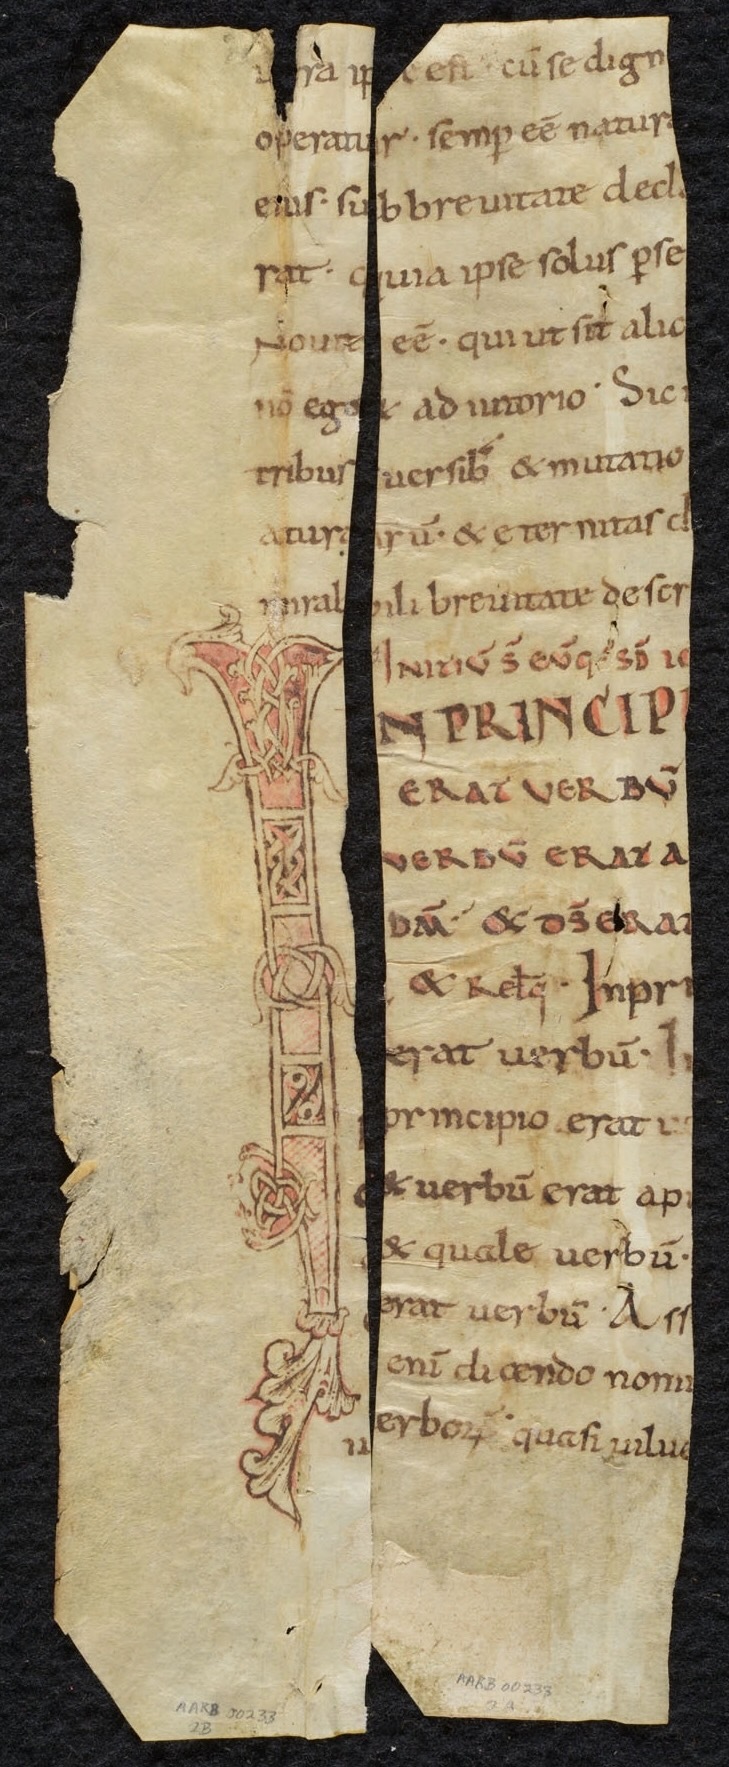 cū se dign
operatur · semp eē natura
eius · sub breuitate decla
rat · quia ipse solus pse
Nouit eē · qui ut sit alic
nō eget adiutorio · Sic
tribus uersib; & mutatio
aturarū · & eternitas d
mirabili breuitate descr
INITIŪ S̄ EŪG SD̄ IO
IN PRINCIPI
ERAT VERBŪ
VERBŪ ERAT A
DM̄ · & DS̄ ERAT
& RELQ̄ · Inpri
erat uerbū · In
principio erat u
& uerbū erat apu
& quale uerbū ·
erat uerbū · Ass
enī dicendo nomi
uerboꝝ · quasi uilue
AARB 00233
2A
AARB 00233
2B